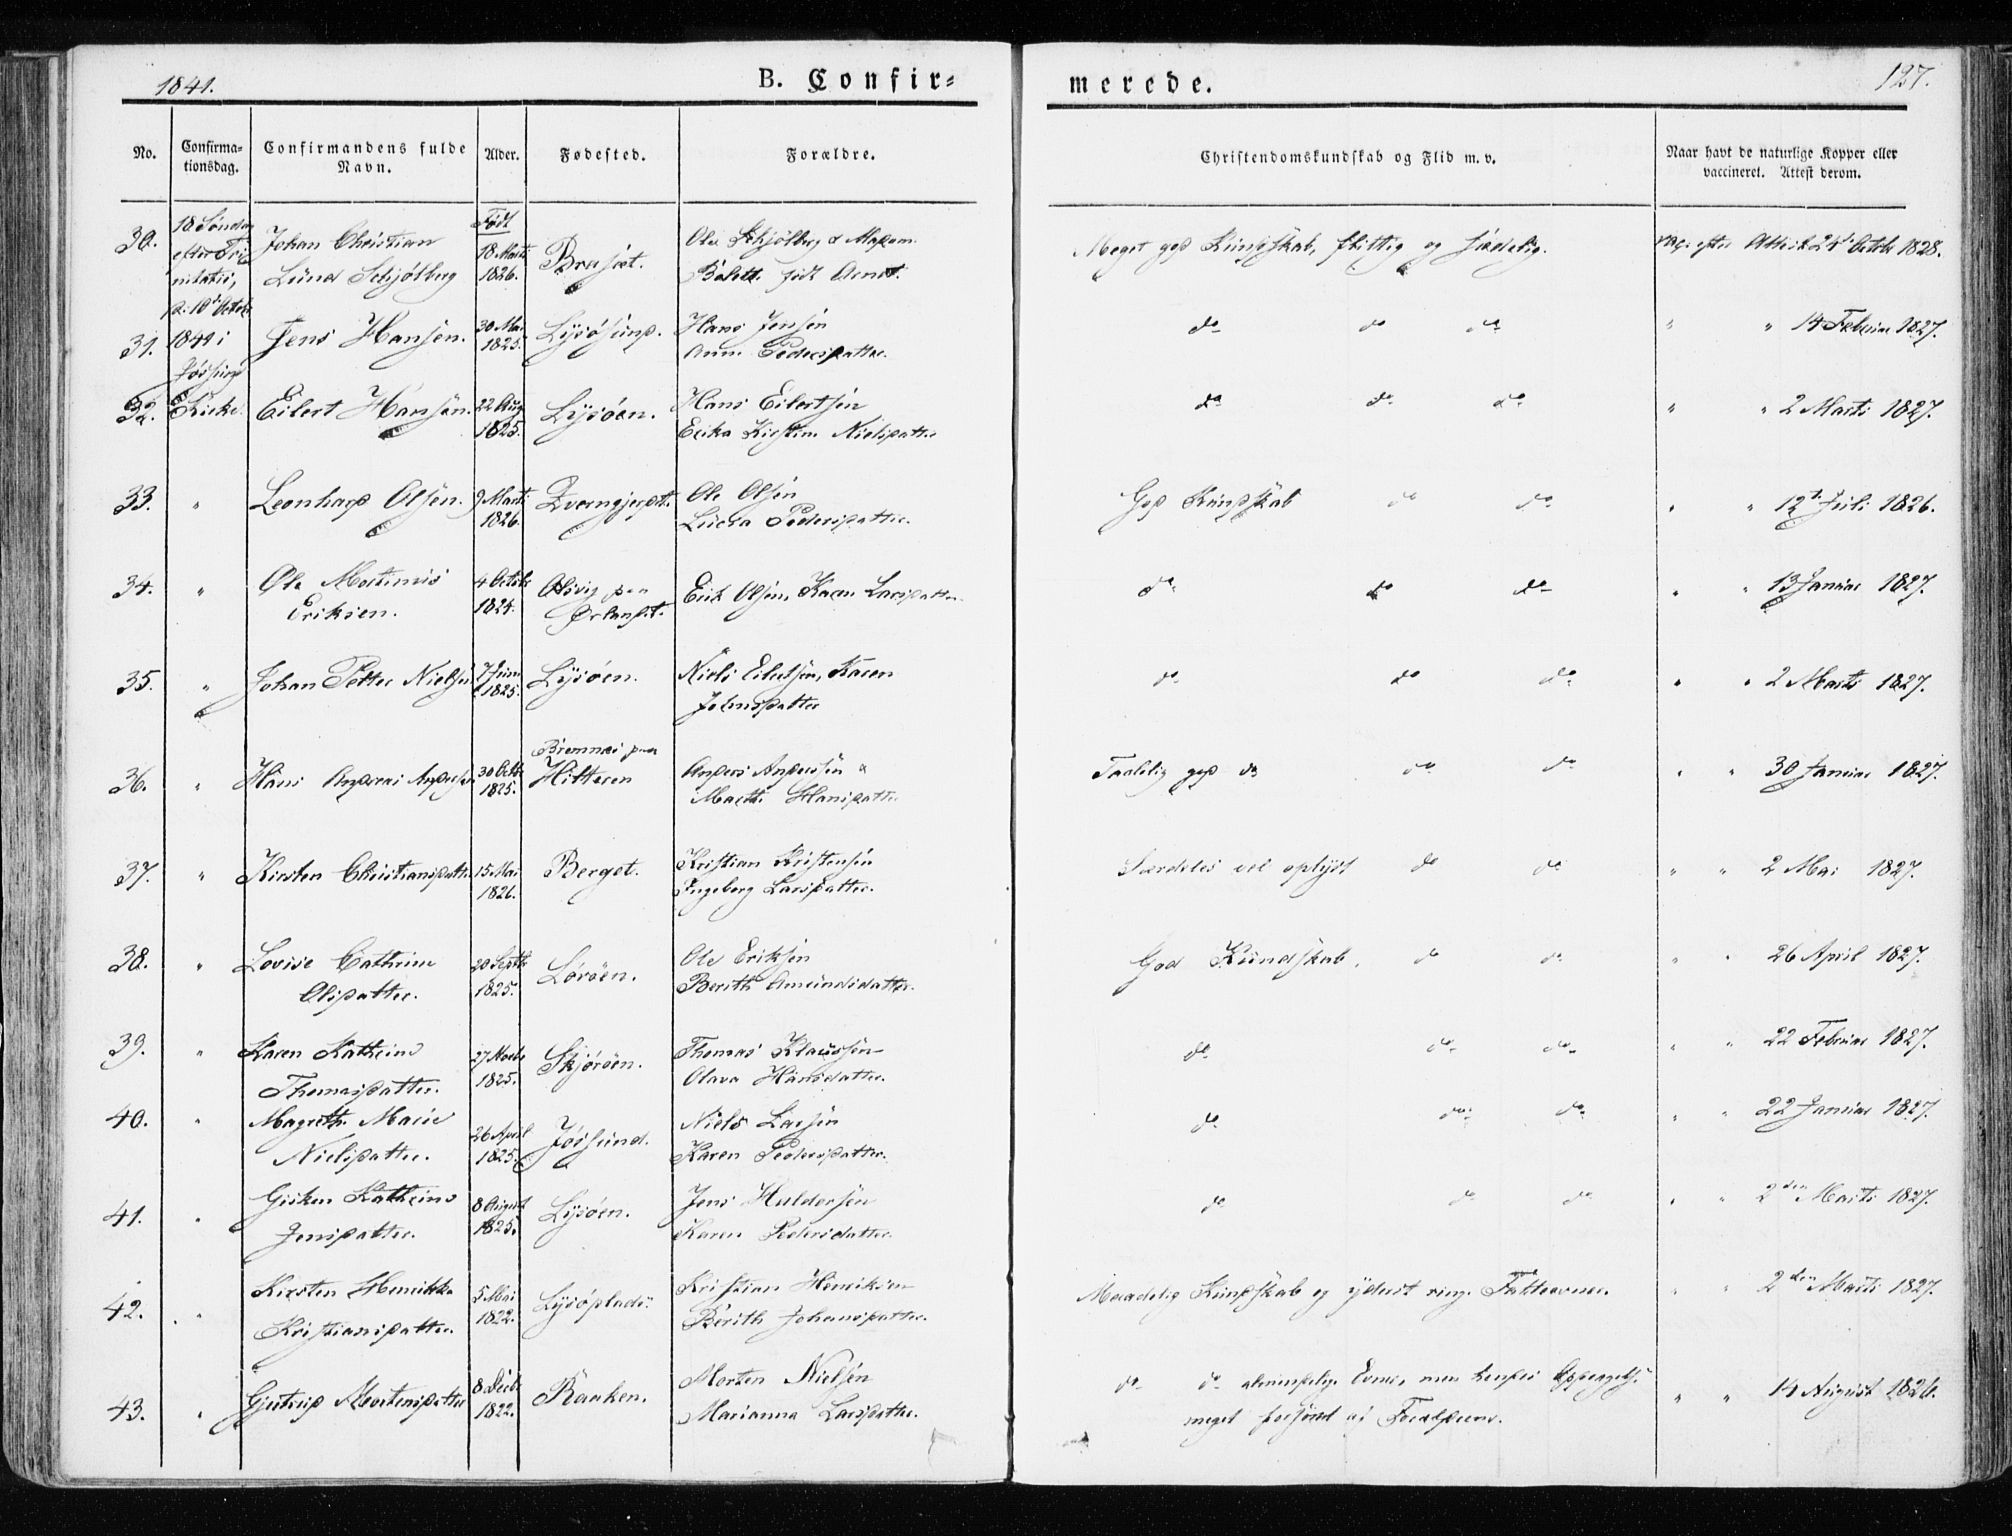 1841.
B. Confir=
merede.
127.
No.
Confirma-
tionsdag.
Confirmandens fulde
Navn.
Alder.
Fødested.
Forældre.
Christendomskundskab og Flid m. v.
Naar havt de naturlige Kopper eller
vaccineret. Attest derom.
30. 18 Søndag efter Trinitatis, Johan Christian Lund Schjølberg Født 18 Marts 1826. Ole Schjølberg & Madam født Arnet. Meget god Kundskab, flittig og sædelig. vac: efter Attest 24 Octob 1828.
31. 1841 i Jøssund Jens Hansen. 30 Mai 1825. Lysøsund. Hans Jensen Pedersdatter. do do do " " 14 Februar 1827.
32. Kirke. Eilert Hansen. 22 Aug 1825. Lysøen. Hans Eilertsen Erika Kirstine Nielsdatter do do do " " 2 Marts 1827.
33. " Leonhard Olsen. 9 Marts 1826. Ole Olsen Pedersdatter. God Kundskab do do " " 12te Juli 1826.
34. " Ole Mortinus Eriksen. 4 Octobr 1824. paa Ørlandet. Erik Olsen, Karen Larsdatter. do do do " " 13 Januar 1827.
35. " Johan Petter Nielsen 7 Juni 1825. Lysøen. Niels Eilertsen, Karen Johnsdatter do do do " " 2 Marts 1827.
36. " Hans Andreas Andersen 30 Octbr 1825. Bremnes paa Hitteren Anders Andersen & Marth Hansdatter Taalelig god do do do " " 30 Januar 1827.
37. " Kirsten Christiansdatter 15 Mai 1826. Berget. Kristian Kristensen Ingeborg Larsdatter. Særdeles vel oplyst do do " " 2 Mai 1827.
38. " Lovise Cathrine Olsdatter. 20 Septbr 1825. Lørøen. Ole Eriksen Berith Amundsdatter. God Kundskab. do do " " 26 April 1827.
39. " Karen Kathrine Thomasdatter. 27 Novbr 1825. Skjørøen. Thomas Klaussen Olava Hansdatter. do do do " " 22 Februar 1827.
40. " Magrethe Marie Nielsdatter. 26 April 1825. Jøssund. Niels Larsen Karen Pedersdatter. do do do " " 22 Januar 1827.
41. " Gisken Kathrine Jensdatter. 8 August 1825. Lysøen. Jens Haldorsen Karen Pedersdatter. do do do " " 2den Marts 1827.
42. " Kirsten Henrikka Kristiansdatter. 5 Mai 1822. Kristian Henriksen Berith Johansdatter. Maadelig Kundskab og yderst ringe Fatteevner. " " 2den Marts 1827.
43. " Gjertrud Mortensdatter 8 Decbr 1822. Raaken. Morten Nielsen Marianna Larsdatter. do do almindelige Evner, men hendes Opdragelse meget forsømt af Forældrene. " " 14 August 1826.